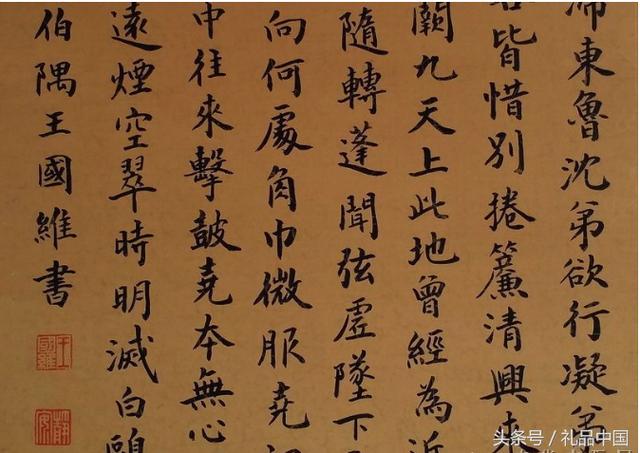 東魯沈弟欲行凝弟
皆惜別捲簾清興來
闕九天上此地曾經為近
隨轉蓬聞弦虛墜下
向何處角巾微服堯
中往來擊鼓堯本無心
遠煙空翠時明滅白鷗
伯隅王國維書
王國維
靜安
头条号/礼品中国